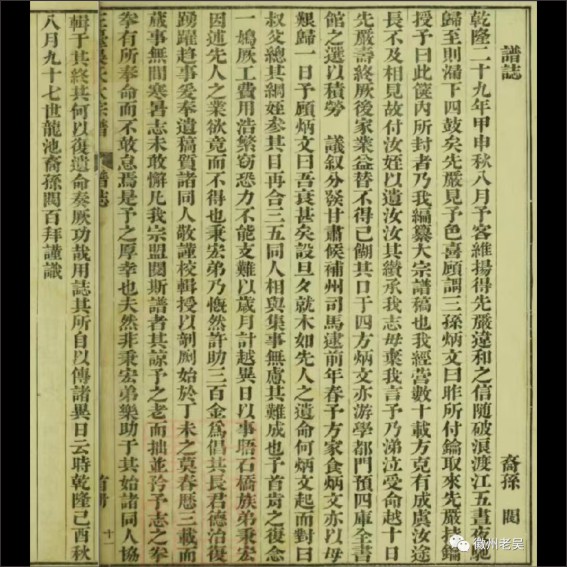 譜誌
裔孫　閎
乾隆二十九年甲申秋八月予客維揚得先嚴違和之信隨破浪渡江五晝夜馳
歸至則漏下四鼓矣先嚴見予色喜顧謂三孫炳文曰昨所付鑰取來先嚴持鑰
授予曰此篋內所封者乃我編纂大宗譜稿也我經營數十載方克有成虞汝途
長不及相見故付汝姪以遺汝汝其纘承我志毋棄我言予乃涕泣受命越十日
先嚴壽終厥後家業益替不得已餬其口于四方炳文亦游學都門預四庫全書
館之選以積勞　議叙分發甘肅候補州司馬建前年春予方家食炳文亦以母
艱歸一日予顧炳文曰吾衰甚矣設旦夕就木如先人之遺命何炳文起而對曰
叔父總其綱姪參其目再合三五同人相與集事無慮其難成也予首肯之復念
一鳩厥工費用浩繁窃恐力不能支難以歲月計越異日以事晤石橋族弟秉宏
因述先人之業欲竟而不得也秉宏弟乃慨然許助三百金爲倡其長君德治復
踴躍趨事爰奉遺稿質諸同人敬謹校輯授以剞劂始於丁未之莫春厯三載而
蕆事無間寒暑志未敢懈凡我宗盟閱斯譜者其諒予之老而拙並矜予志之拳
拳有所奉命而不敢怠焉是予之厚幸也夫然非秉宏弟樂助于其始諸同人協
大宗譜
譜誌
首冊
十
輯于其終其何以復遺命奏厥功哉用誌其所自以傳諸異日云時乾隆己酉秋
八月九十七世龍池裔孫閎百拜謹識
徽州老吴